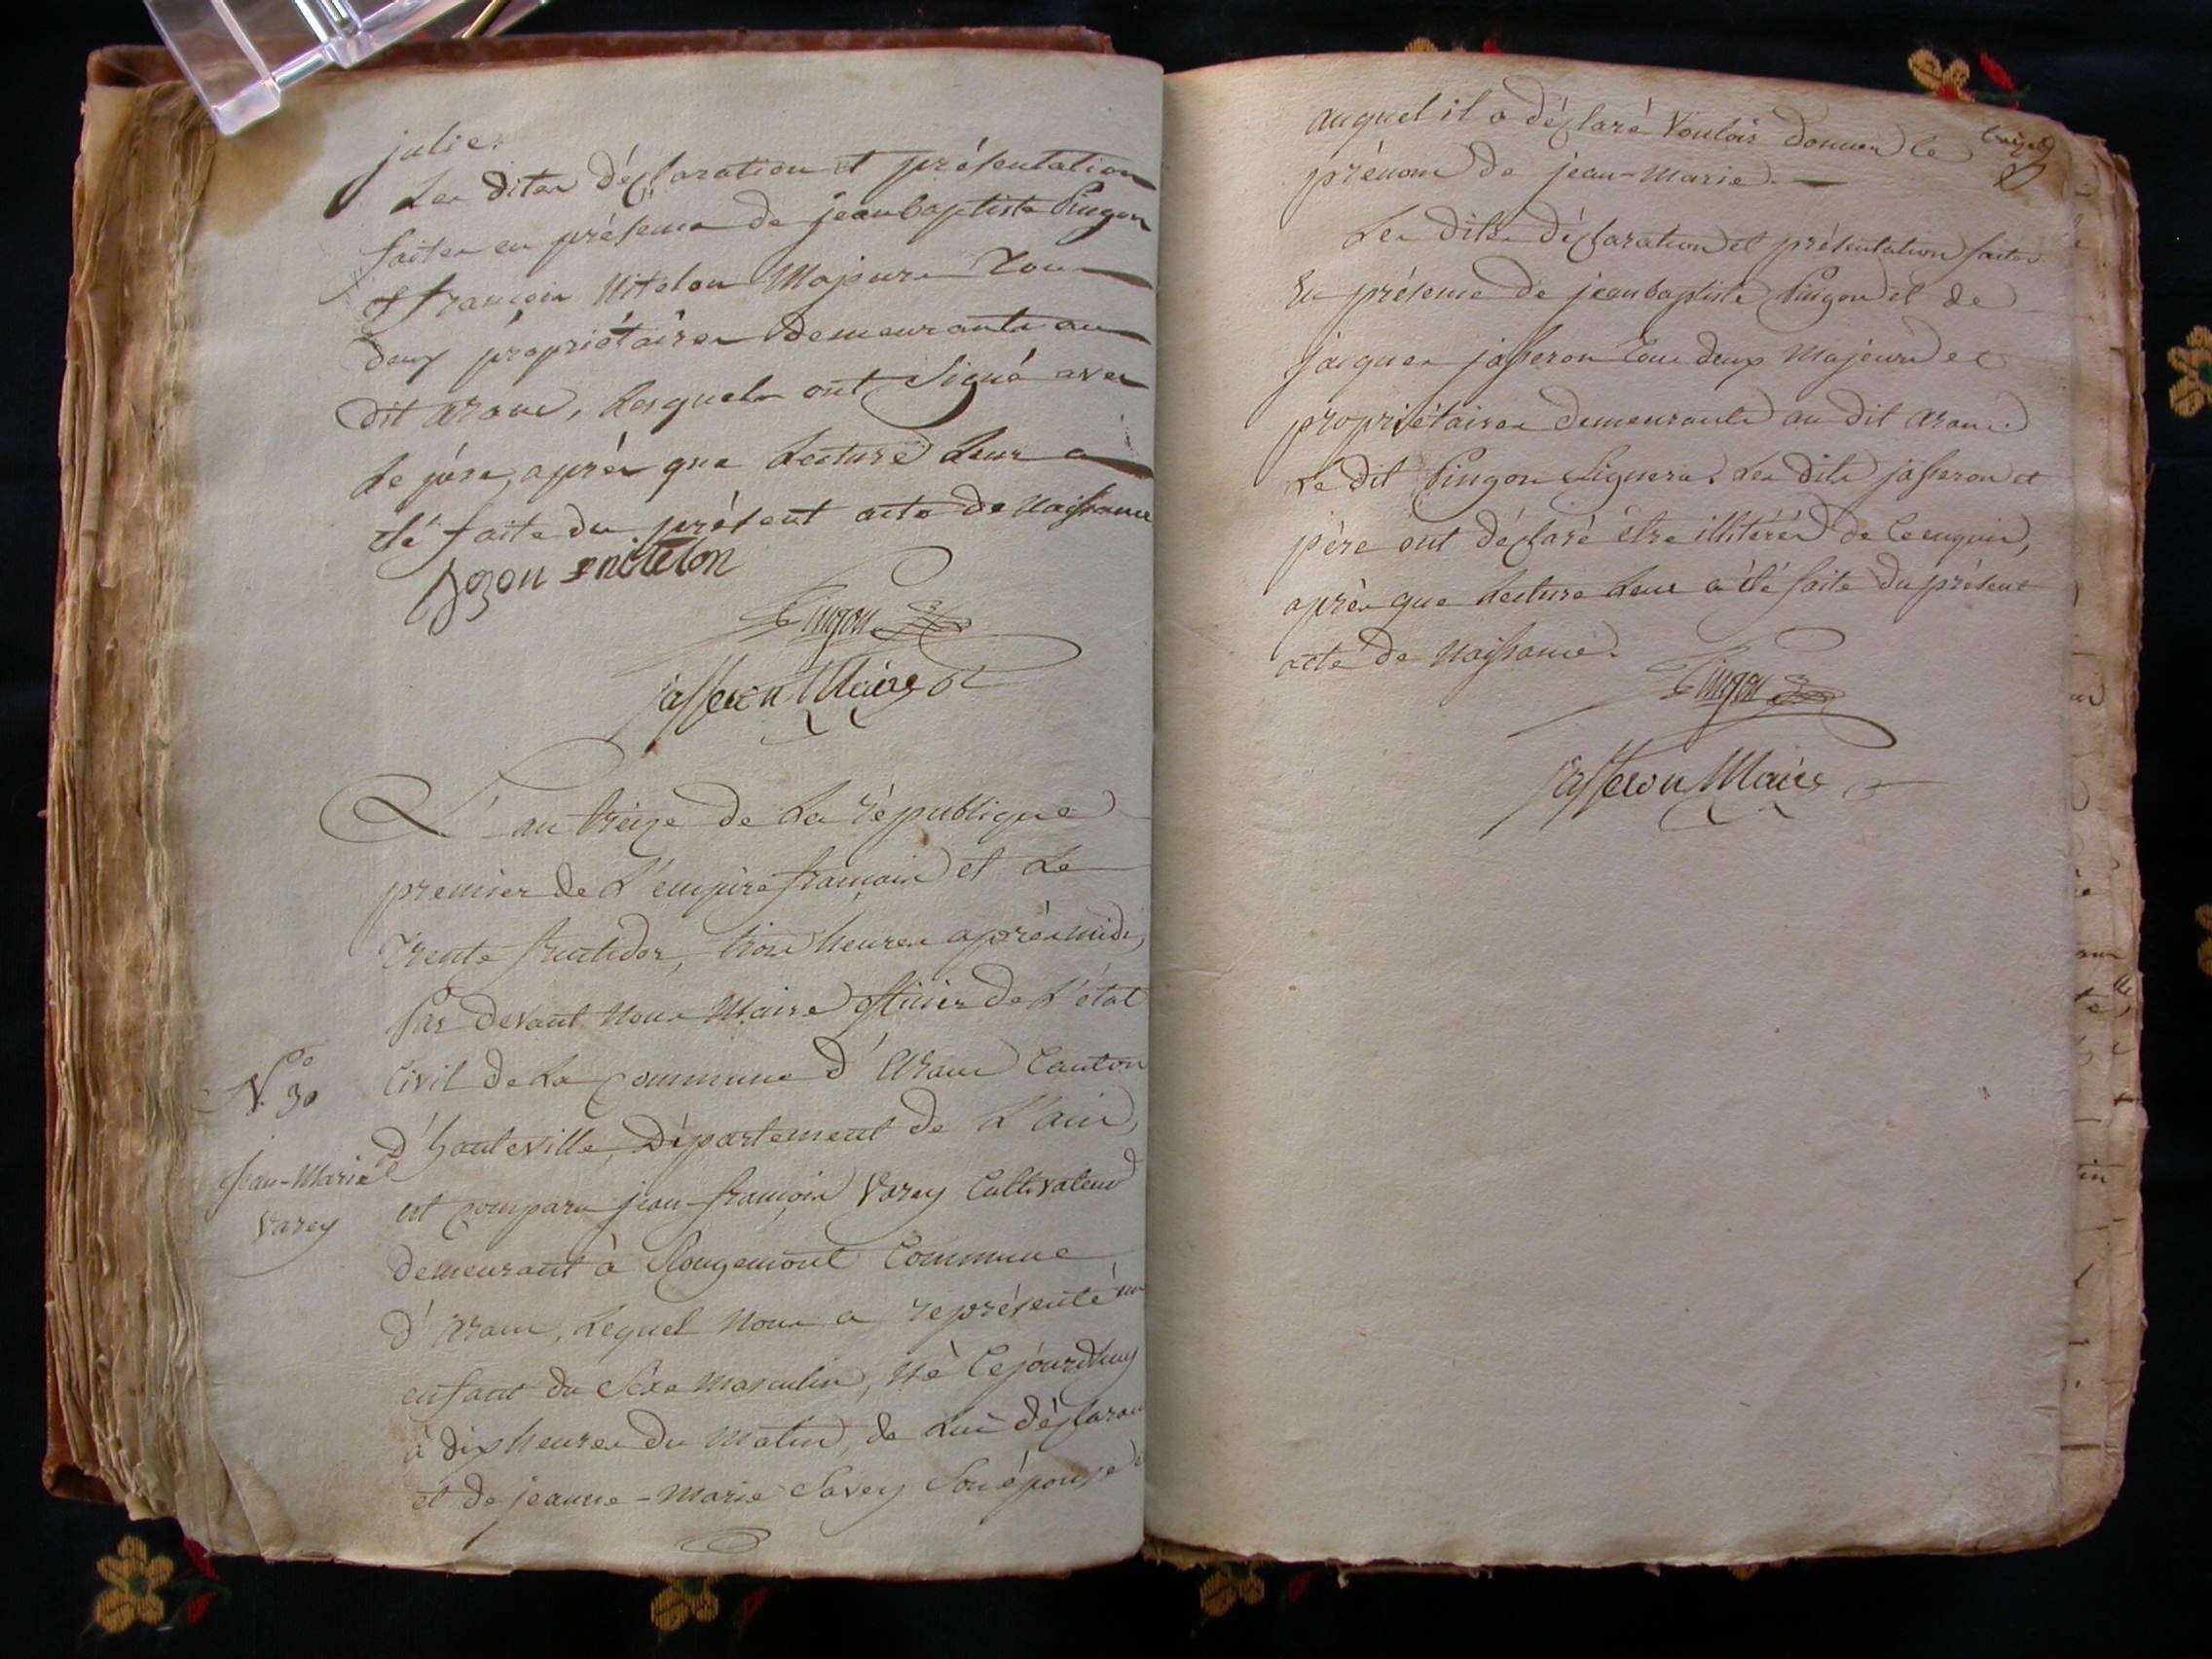 julie.
Les dites déclaration et présentation
faites en présence de jeanbaptiste Pingon
& françois Nitelon Majeurs Tous
deux propriétaires demeurants au
dit aranc, Lesquels ont Signé avec
Le père, après que Lecture Leur a
été faite du présent acte de Naissance
Pingon
jasseron Maire
L'an treize de La république
premier de L'empire françois et Le
Trente fructidor, trois heures après midi,
Par devant Nous Maire officier de L'état
Civil de La Commune d'Aranc Canton
d'hauteville, Département de L'ain,
est comparu jean-françois Varey Cultivateur
demeurant à Rougemont Commune
d'aranc, Lequel Nous a représenté un
enfant du Sexe Masculin, Né Cejourdhuy
à dix heures du Matin, de Lui déclarant
et de jeanne-Marie Savey Son épouse et
N.º 30
Jean-Marie
Varey
auquel il a déclaré Vouloir donner le
prénom de jean-Marie.
Les dites déclaration et présentation faites
En présence de jeanbaptiste Pingon et de
jacques jasseron Tous deux Majeurs et
propriétaires demeurants au dit aranc.
Le dit Pingon Signera. Les dits jasseron et
père ont déclaré être illitérés de Ce enquis,
après que Lecture Leur a été faite du présent
acte de Naissance.
Pingon
jasseron Maire